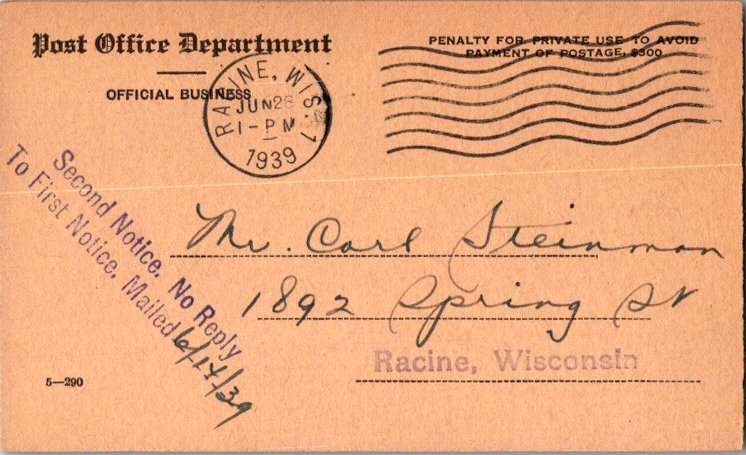 Post Office Department
OFFICIAL BUSINESS
PENALTY FOR PRIVATE USE TO AVOID
PAYMENT OF POSTAGE, $300
RACINE, WIS. 1
JUN 28
1 - PM
1939
Second Notice. No Reply
To First Notice, Mailed 6/14/39
Mr. Carl Steinman
1892 Spring St
Racine, Wisconsin
5—290